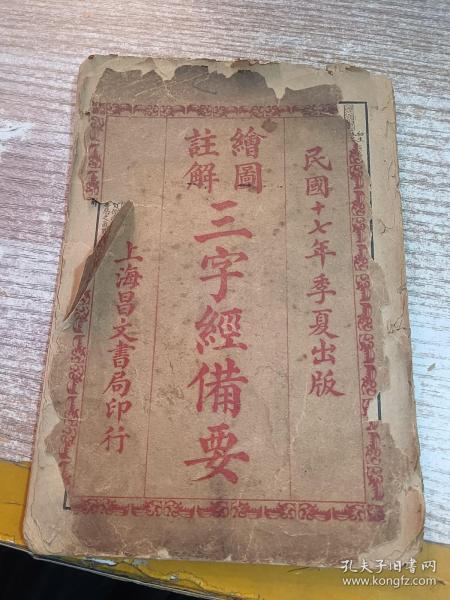 民國十七年季夏出版
繪圖
註解
三字經備要
上海昌文書局印行
孔夫子旧书网
www.kongfz.com